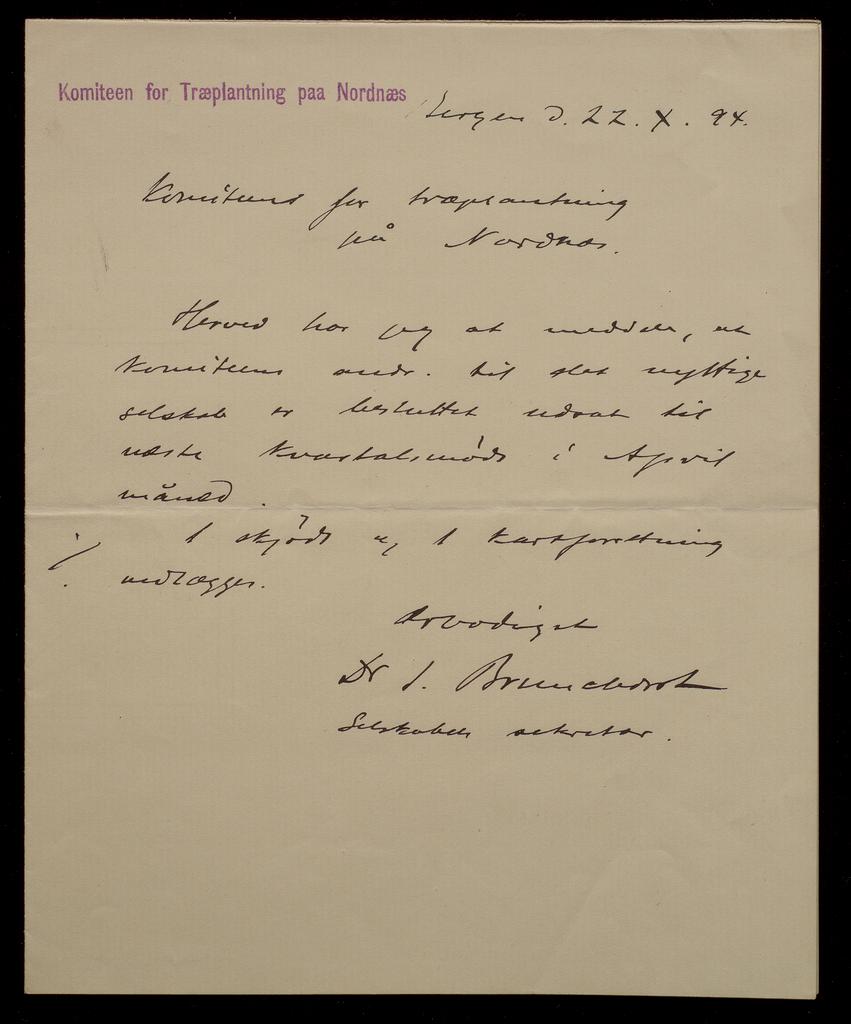 Komiteen for Træplantning paa Nordnæs
Bergen d. 22. X. 94.
Komiteens for træplantning
på Nordnæs.
Herved har jeg at meddele, at
Komiteens andr. til det nyttige
selskab er besluttet udsat til
næste Kvartalsmøde i April
måned.
1 skjøde og 1 Kartforretning
vedlægges.
Ærbødigst
Dr J. Brunchorst
Selskabets sekretær.